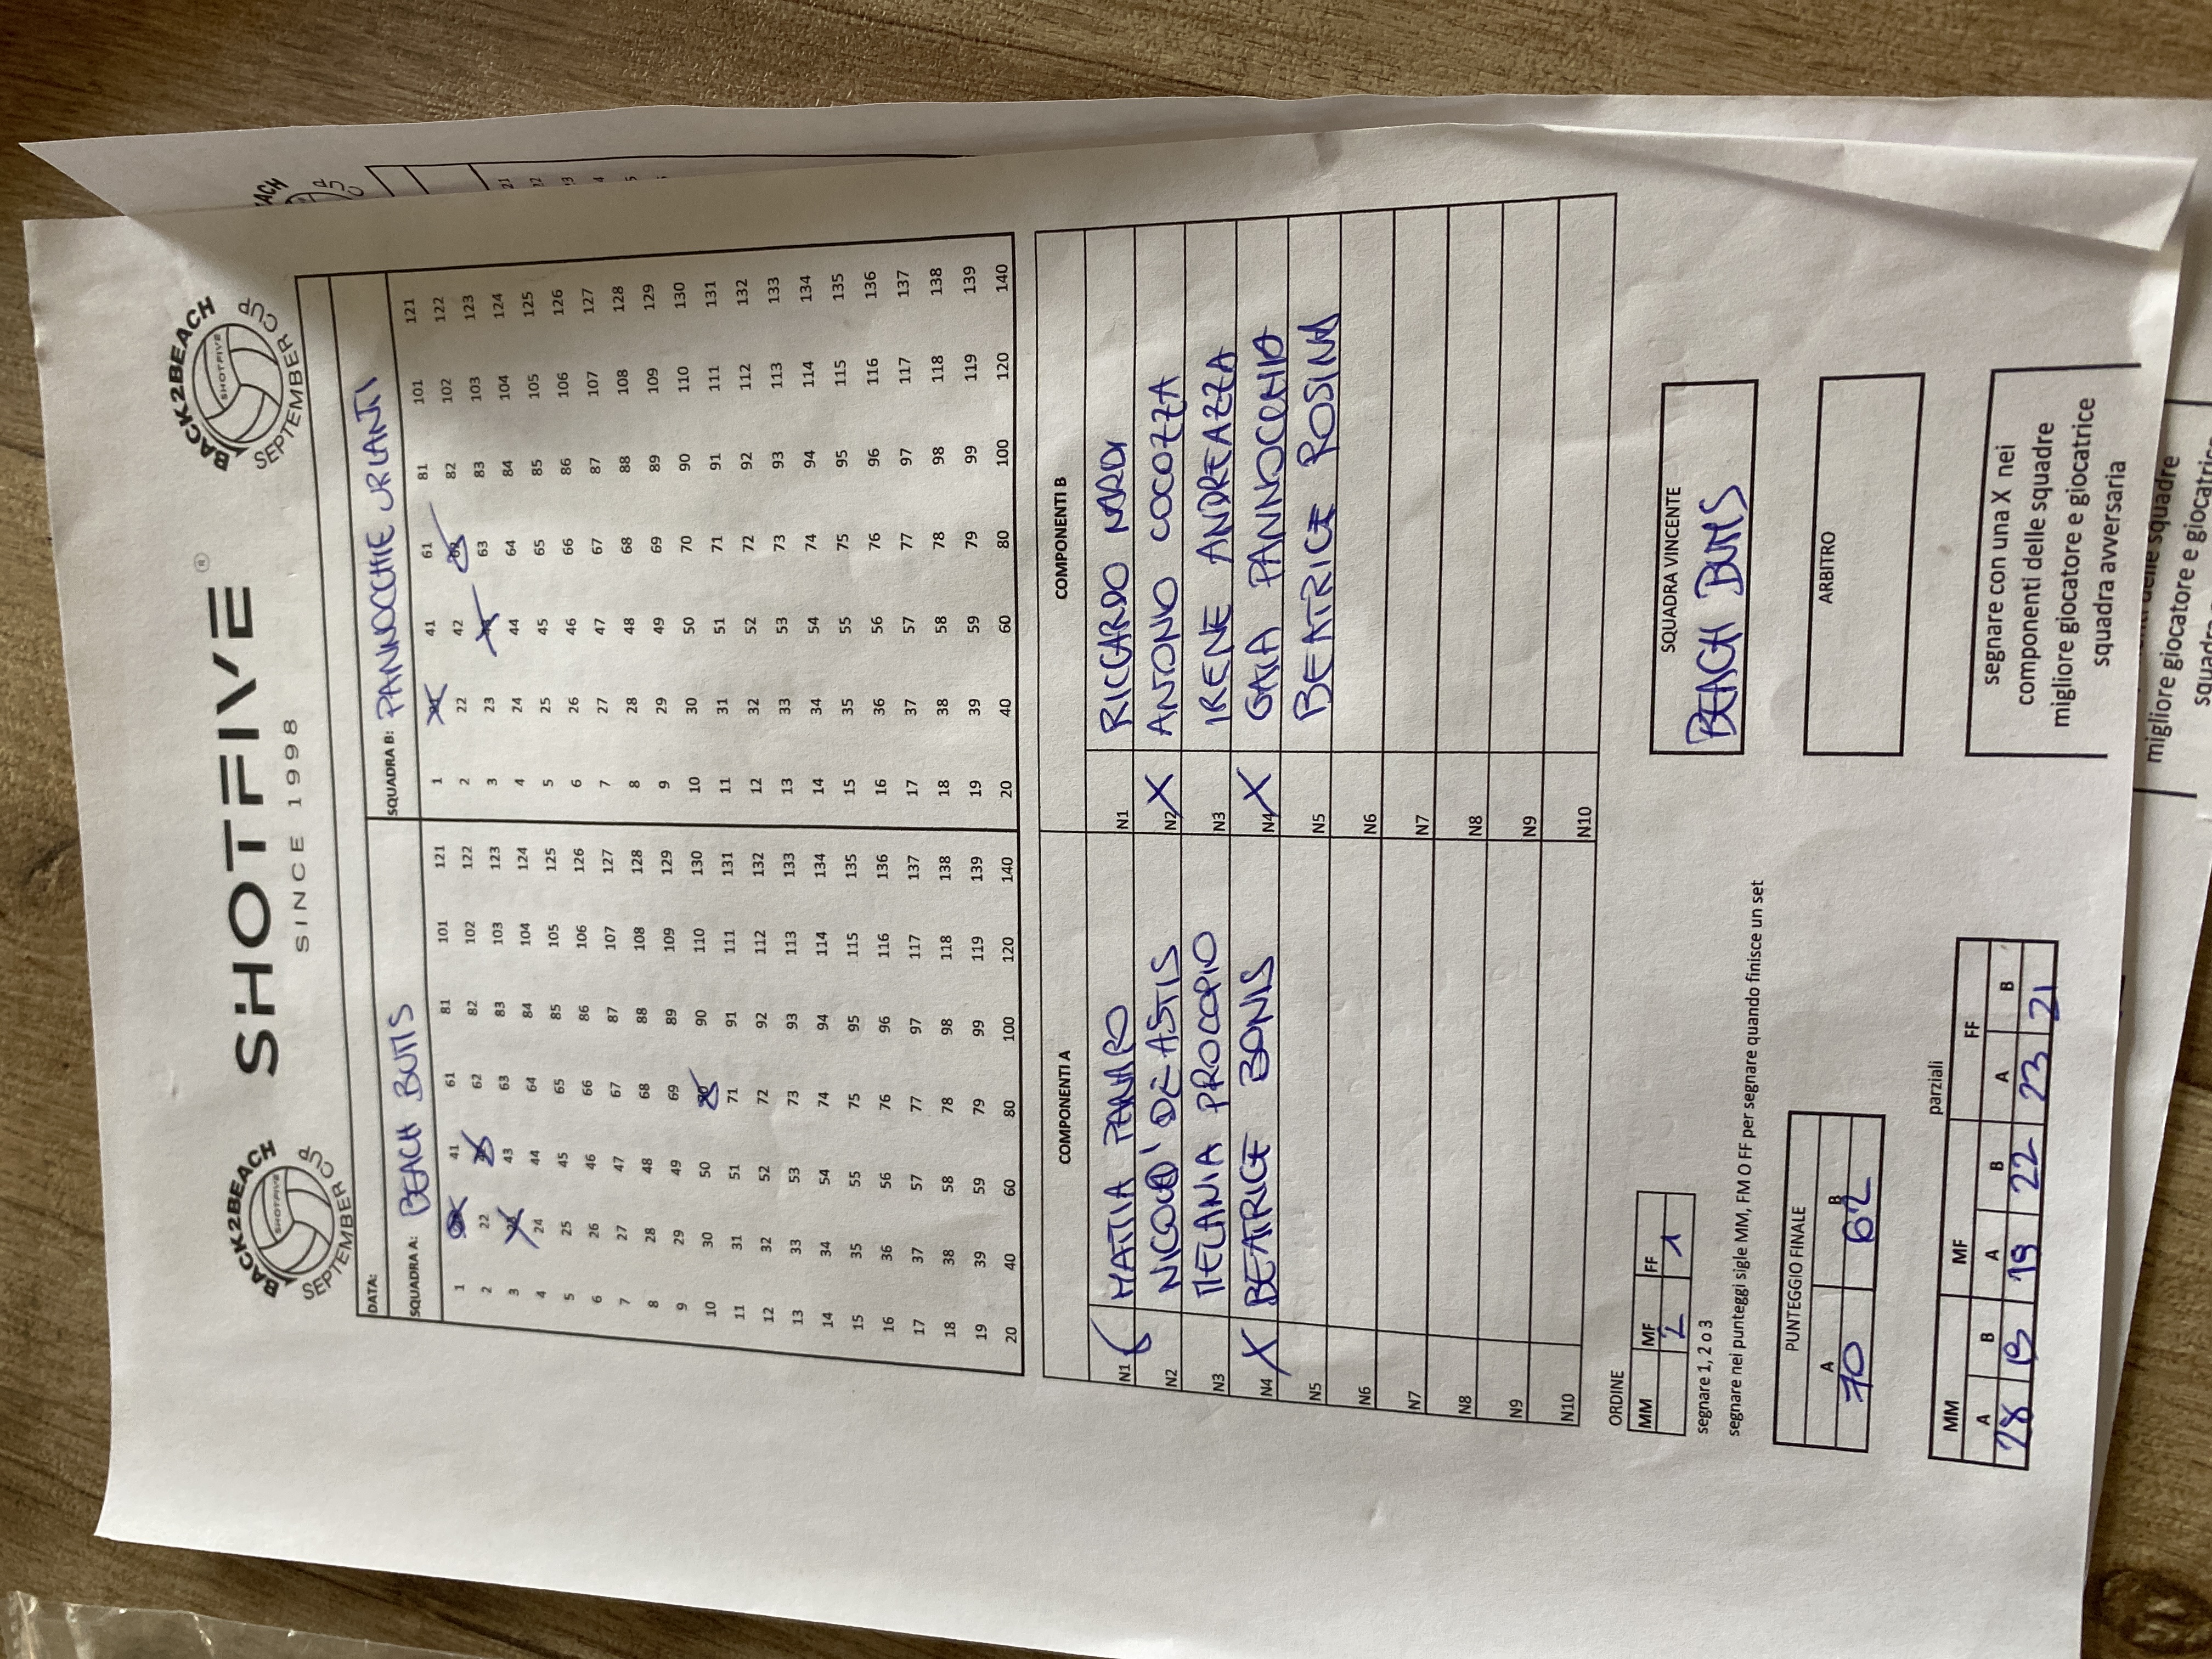 BACK2BEACH
SHOTFIVE
SEPTEMBER CUP
SHOTFIVE®
SINCE 1998
BACK2BEACH
SHOTFIVE
SEPTEMBER CUP
DATA:
SQUADRA A: BEACH BUMS SQUADRA B: PANNOCCHIE URLANTI
1 41 61 81 101 121 1 41 61 81 101 121
2 22 62 82 102 122 2 22 42 82 102 122
3 43 63 83 103 123 3 23 63 83 103 123
4 24 44 64 84 104 124 4 24 44 64 84 104 124
5 25 45 65 85 105 125 5 25 45 65 85 105 125
6 26 46 66 86 106 126 6 26 46 66 86 106 126
7 27 47 67 87 107 127 7 27 47 67 87 107 127
8 28 48 68 88 108 128 8 28 48 68 88 108 128
9 29 49 69 89 109 129 9 29 49 69 89 109 129
10 30 50 70 90 110 130 10 30 50 70 90 110 130
11 31 51 71 91 111 131 11 31 51 71 91 111 131
12 32 52 72 92 112 132 12 32 52 72 92 112 132
13 33 53 73 93 113 133 13 33 53 73 93 113 133
14 34 54 74 94 114 134 14 34 54 74 94 114 134
15 35 55 75 95 115 135 15 35 55 75 95 115 135
16 36 56 76 96 116 136 16 36 56 76 96 116 136
17 37 57 77 97 117 137 17 37 57 77 97 117 137
18 38 58 78 98 118 138 18 38 58 78 98 118 138
19 39 59 79 99 119 139 19 39 59 79 99 119 139
20 40 60 80 100 120 140 20 40 60 80 100 120 140
COMPONENTI A COMPONENTI B
N1 MATTIA N1 RICCARDO NARDI
N2 NICOLO' DE ASTIS N2 X ANTONIO COCOZZA
N3 MELANIA PROCOPIO N3 IRENE ANDREAZZA
N4 X BEATRICE BONIS N4 X GAIA PANNOCCHIA
N5 N5 BEATRICE ROSINA
N6 N6
N7 N7
N8 N8
N9 N9
N10 N10
ORDINE
MM MF FF
2 1
segnare 1, 2 o 3
segnare nei punteggi sigle MM, FM O FF per segnare quando finisce un set
SQUADRA VINCENTE
BEACH BUMS
PUNTEGGIO FINALE
A B
70 62
ARBITRO
parziali
MM MF FF
A B A B A B
28 19 22 23 21
segnare con una X nei
componenti delle squadre
migliore giocatore e giocatrice
squadra avversaria
migliore giocatore e giocatrice